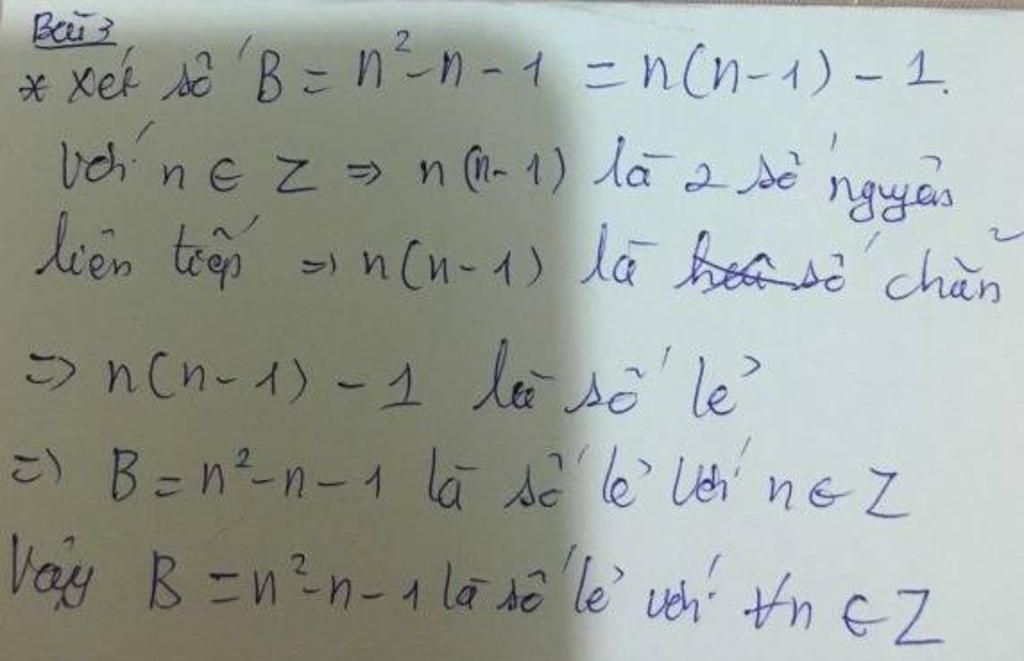 Bài 3
* xét số B = n² - n - 1 = n(n-1) - 1.
Với n ∈ Z ⇒ n(n-1) là 2 số nguyên
liên tiếp ⇒ n(n-1) là số chẵn
⇒ n(n-1) - 1 là số lẻ
⇒ B = n² - n - 1 là số lẻ với n ∈ Z
Vậy B = n² - n - 1 là số lẻ với ∀n ∈ Z